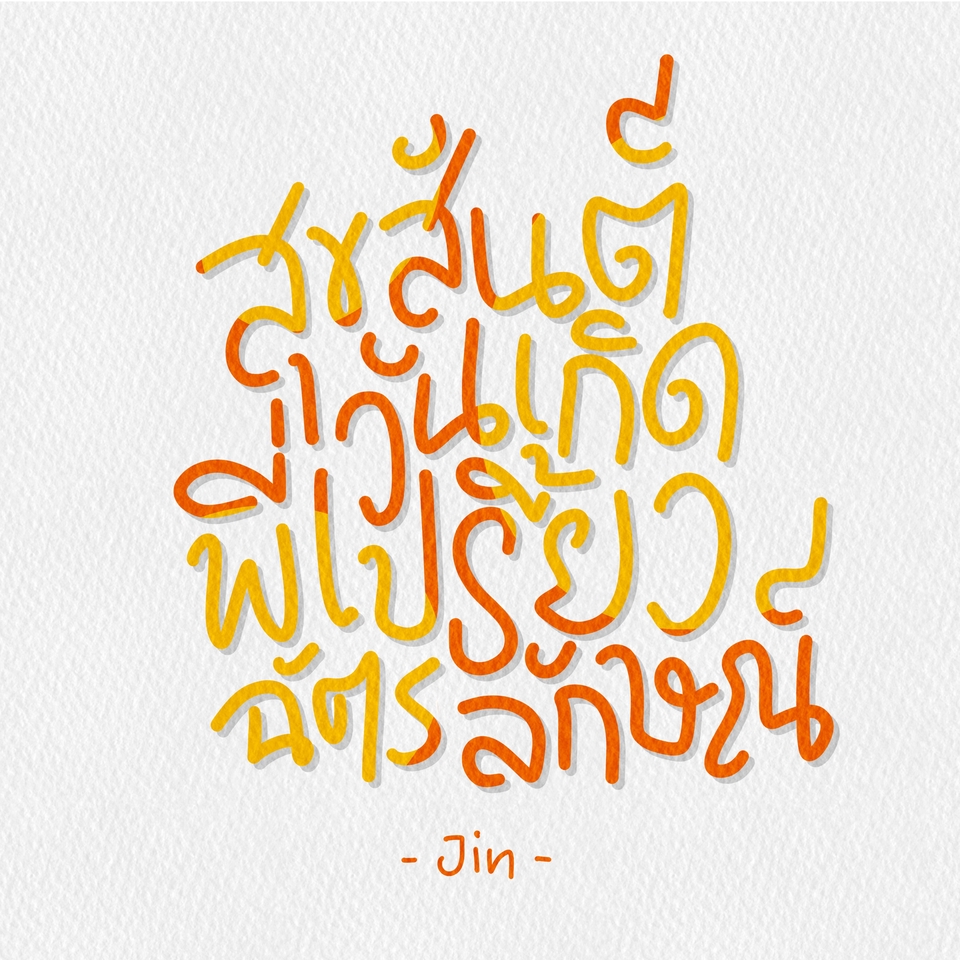 สุขสันต์
วันเกิด
พี่เปรี้ยว
ฉัตรลักษณ์
- Jin -